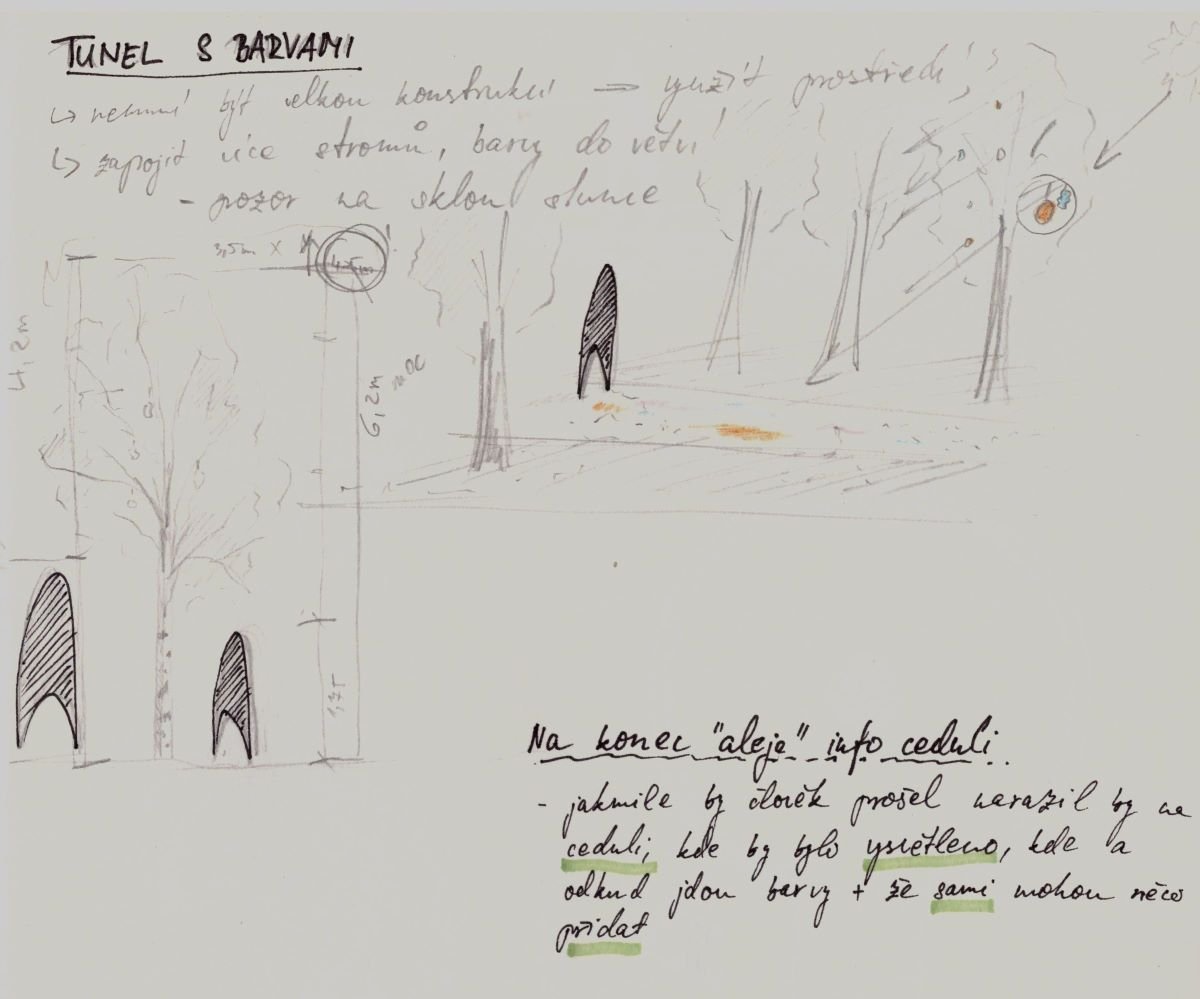 TUNEL S BARVAMI
↳ nemusí být velkou konstrukcí ⇒ využít prostředí!
↳ zapojit více stromů, barvy do větví!
- pozor na sklon slunce
3,5m X
4,2m
6,2m
moc
1,75
Na konec "aleje" info ceduli
- jakmile by člověk prošel narazil by na
ceduli, kde by bylo vysvětleno, kde a
odkud jdou barvy + že sami mohou něco
přidat